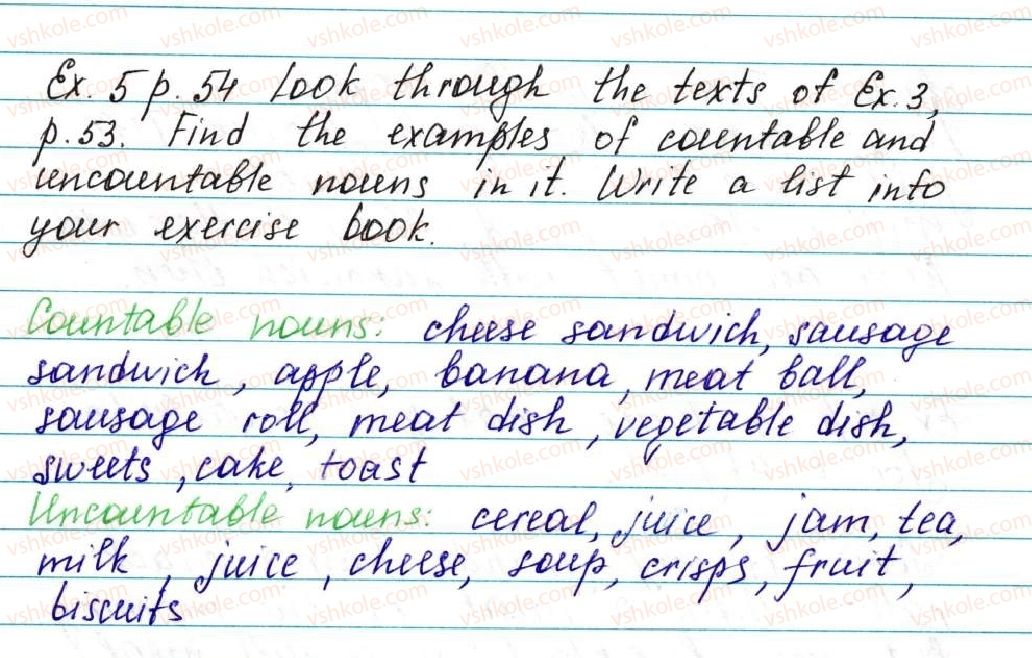 Ex. 5 p. 54 Look through the texts of Ex. 3,
p. 53. Find the examples of countable and
uncountable nouns in it. Write a list into
your exercise book.
Countable nouns: cheese sandwich, sausage
sandwich, apple, banana, meat ball,
sausage roll, meat dish, vegetable dish,
sweets, cake, toast
Uncountable nouns: cereal, juice, jam, tea,
milk, juice, cheese, soup, crisps, fruit,
biscuits